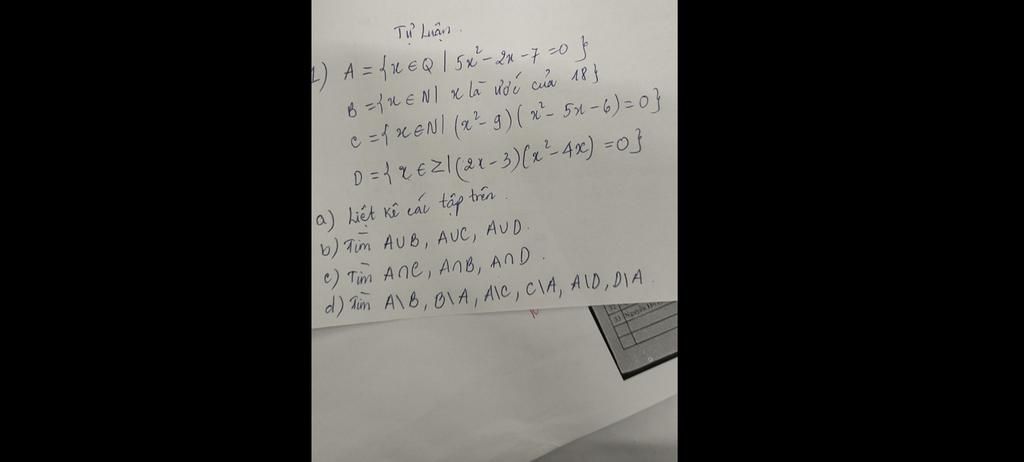 Tự Luận.
1) A = {x ∈ Q | 5x² - 2x - 7 = 0}
B = {x ∈ N | x là ước của 18}
C = {x ∈ N | (x² - 9)(x² - 5x - 6) = 0}
D = {x ∈ Z | (2x - 3)(x² - 4x) = 0}
a) Liệt kê các tập trên.
b) Tìm A∪B, A∪C, A∪D.
c) Tìm A∩C, A∩B, A∩D.
d) Tìm A\B, B\A, A\C, C\A, A\D, D\A.
33 Nguyễn